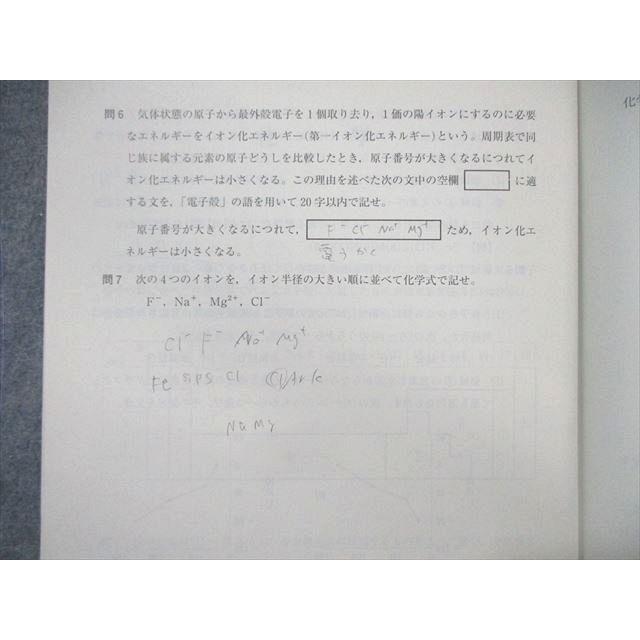 問6 気体状態の原子から最外殻電子を1個取り去り，1価の陽イオンにするのに必要
なエネルギーをイオン化エネルギー(第一イオン化エネルギー)という。周期表で同
じ族に属する元素の原子どうしを比較したとき，原子番号が大きくなるにつれてイ
オン化エネルギーは小さくなる。この理由を述べた次の文中の空欄 に適
する文を，「電子殻」の語を用いて20字以内で記せ。
原子番号が大きくなるにつれて， F⁻ Cl⁻ Na⁺ Mg⁺ ため，イオン化エ
ネルギーは小さくなる。
問7 次の4つのイオンを，イオン半径の大きい順に並べて化学式で記せ。
F⁻，Na⁺，Mg²⁺，Cl⁻
Cl⁻ F⁻ Na⁺ Mg⁺
Na Mg
化学